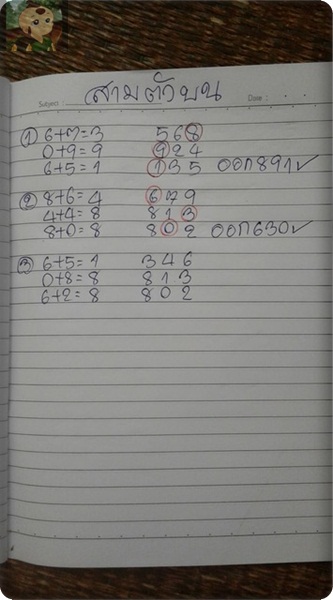 Subject : สามตัวบน Date :
① 6+7=3 568
0+9=9 924
6+5=1 135 ออก891✓
② 8+6=4 679
4+4=8 813
8+0=8 802 ออก630✓
③ 6+5=1 346
0+8=8 813
6+2=8 802